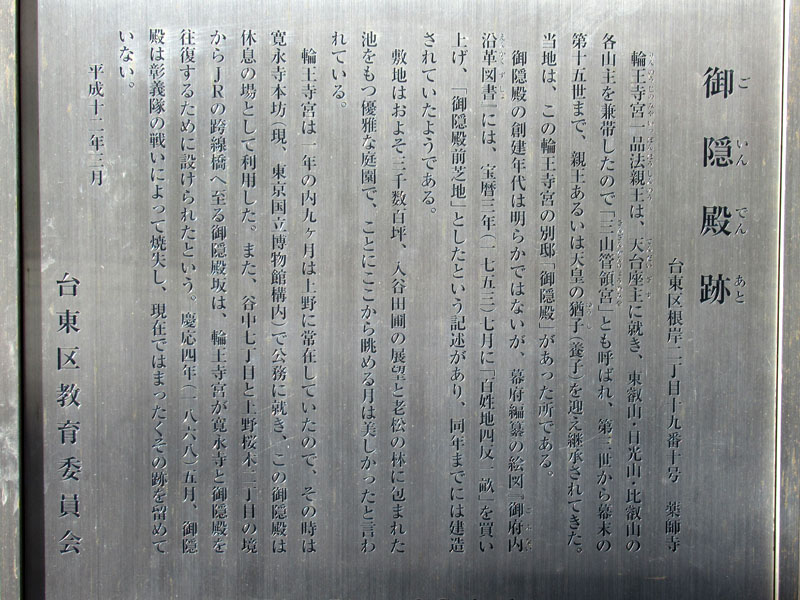 御隠殿跡
ごいんでんあと
台東区根岸二丁目十九番十号　薬師寺
輪王寺宮一品法親王は、天台座主に就き、東叡山・日光山・比叡山の
各山主を兼帯したので「三山管領宮」とも呼ばれ、第三世から幕末の
第十五世まで、親王あるいは天皇の猶子(養子)を迎え継承されてきた。
当地は、この輪王寺宮の別邸「御隠殿」があった所である。
御隠殿の創建年代は明らかではないが、幕府編纂の絵図『御府内
沿革図書』には、宝暦三年(一七五三)七月に「百姓地四反二畝」を買い
上げ、「御隠殿前芝地」としたという記述があり、同年までには建造
されていたようである。
敷地はおよそ三千数百坪、入谷田圃の展望と老松の林に包まれた
池をもつ優雅な庭園で、ことにここから眺める月は美しかったと言わ
れている。
輪王寺宮は一年の内九ヶ月は上野に常在していたので、その時は
寛永寺本坊(現、東京国立博物館構内)で公務に就き、この御隠殿は
休息の場として利用した。また、谷中七丁目と上野桜木二丁目の境
からJRの跨線橋へ至る御隠殿坂は、輪王寺宮が寛永寺と御隠殿を
往復するために設けられたという。慶応四年(一八六八)五月、御隠
殿は彰義隊の戦いによって焼失し、現在ではまったくその跡を留めて
いない。
平成十二年三月
台東区教育委員会